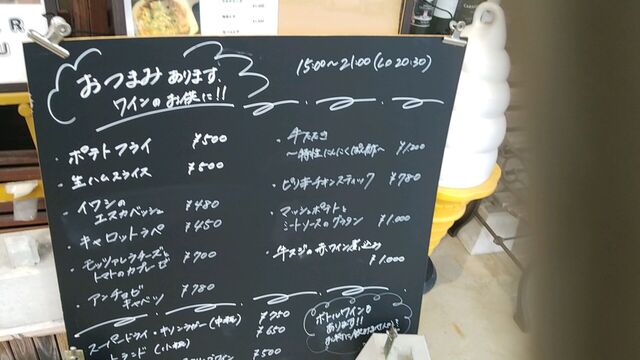 おつまみあります、
ワインのお供に!!
15:00〜21:00(LO 20:30)
・ポテトフライ ¥500
・生ハムスライス ¥500
・イワシの
エスカベッシュ ¥480
・キャロットラペ ¥450
・モッツァレラチーズと
トマトのカプレーゼ ¥700
・アンチョビ
キャベツ ¥780
・牛たたき
〜特性にんにくぽん酢〜 ¥1,200
・ピリ辛チキンスティック ¥780
・マッシュポテトと
ミートソースのグラタン ¥1,000
・牛スジの赤ワイン煮込み
¥1,000
・スーパードライ・キリンラガー(中瓶) ¥750
¥650
(小瓶)
¥500
ボトルワインも
あります!!